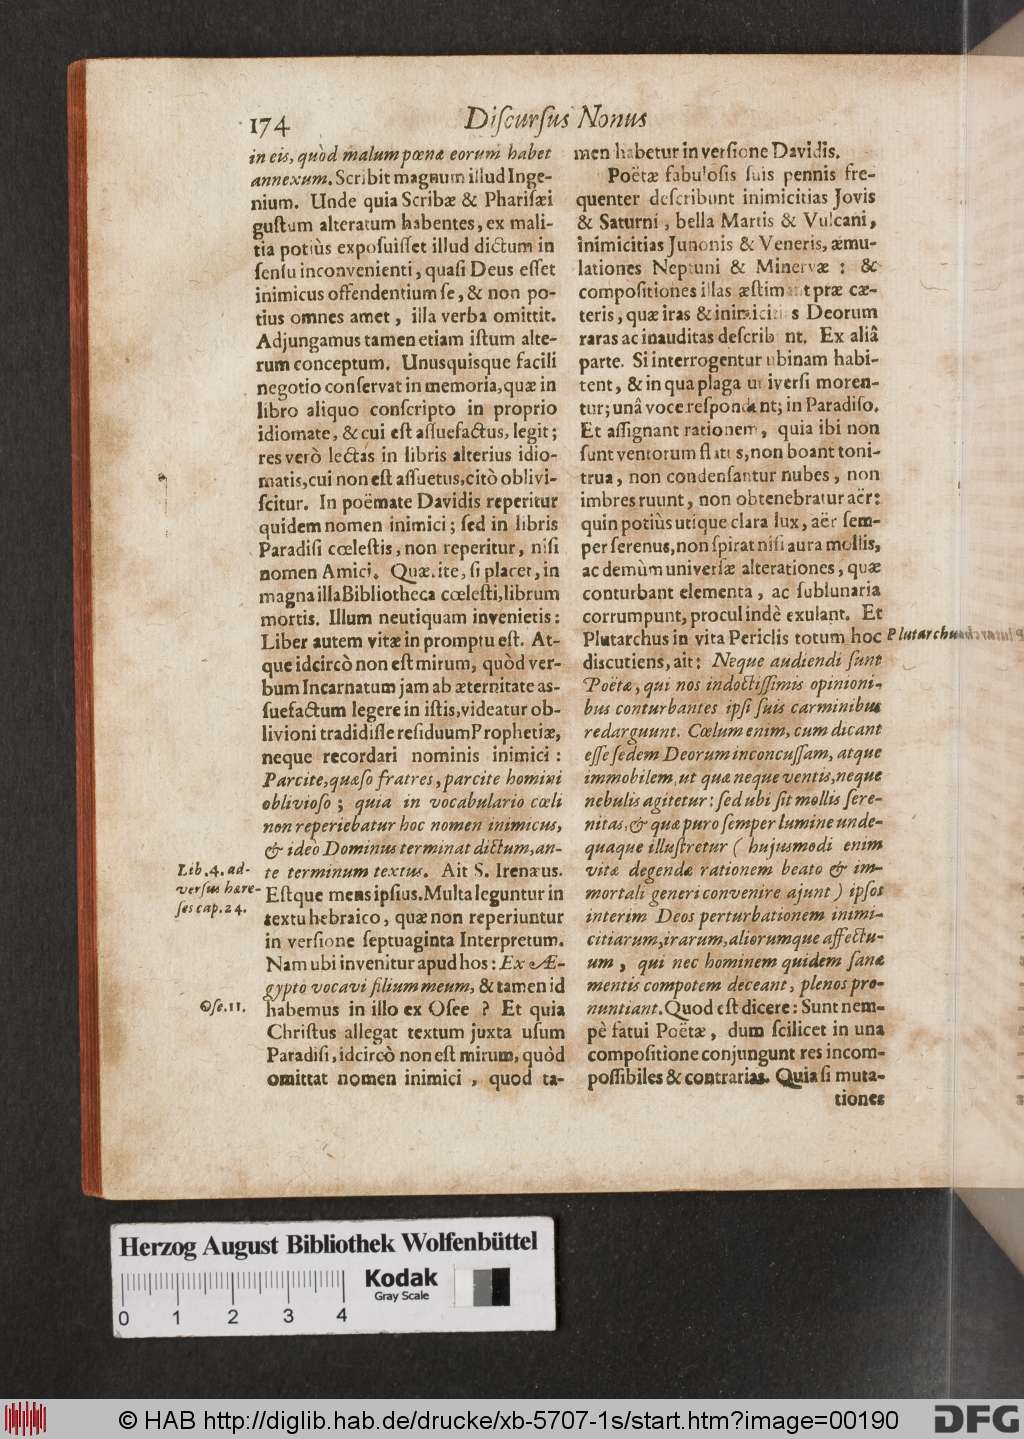 174
Diſcurſus Nonus
in eis, quòd malum pœnæ eorum habet
annexum. Scribit magnum illud Inge-
nium. Unde quia Scribæ & Phariſæi
guſtum alteratum habentes, ex mali-
tia potiùs expoſuiſſet illud dictum in
ſenſu inconvenienti, quaſi Deus eſſet
inimicus offendentium ſe, & non po-
tius omnes amet, illa verba omittit.
Adjungamus tamen etiam iſtum alte-
rum conceptum. Unusquisque facili
negotio conſervat in memoria, quæ in
libro aliquo conſcripto in proprio
idiomate, & cui eſt aſſuefactus, legit;
res verò lectas in libris alterius idio-
matis, cui non eſt aſſuetus, citò oblivi-
ſcitur. In poëmate Davidis reperitur
quidem nomen inimici; ſed in libris
Paradiſi cœleſtis, non reperitur, niſi
nomen Amici. Quærite, ſi placet, in
magna illa Bibliotheca cœleſti, librum
mortis. Illum neutiquam invenietis:
Liber autem vitæ in promptu eſt. At-
que idcircò non eſt mirum, quòd ver-
bum Incarnatum jam ab æternitate as-
ſuefactum legere in iſtis, videatur ob-
livioni tradidiſſe reſiduum Prophetiæ,
neque recordari nominis inimici:
Parcite, quæſo fratres, parcite homini
oblivioſo; quia in vocabulario cœli
non reperiebatur hoc nomen inimicus,
& ideò Dominus terminat dictum, an-
te terminum textus. Ait S. Irenæus.
Eſtque mens ipſius. Multa leguntur in
textu hebraico, quæ non reperiuntur
in verſione ſeptuaginta Interpretum.
Nam ubi invenitur apud hos: Ex Æ-
gypto vocavi filium meum, & tamen id
habemus in illo ex Oſee? Et quia
Chriſtus allegat textum juxta uſum
Paradiſi, idcircò non eſt mirum, quòd
omittat nomen inimici, quod ta-
Lib. 4. ad-
verſus hære-
ſes cap. 24.
Oſe. 11.
men habetur in verſione Davidis.
Poëtæ fabuloſis ſuis pennis fre-
quenter deſcribunt inimicitias Jovis
& Saturni, bella Martis & Vulcani,
inimicitias Junonis & Veneris, æmu-
lationes Neptuni & Minervæ: &
compoſitiones illas æſtimant præ cæ-
teris, quæ iras & inimicitias Deorum
raras ac inauditas deſcribunt. Ex aliâ
parte. Si interrogentur ubinam habi-
tent, & in qua plaga univerſi moren-
tur; unâ voce reſpondent; in Paradiſo.
Et aſſignant rationem, quia ibi non
ſunt ventorum flatus, non boant toni-
trua, non condenſantur nubes, non
imbres ruunt, non obtenebratur aër:
quin potiùs utique clara lux, aër ſem-
per ſerenus, non ſpirat niſi aura mollis,
ac demùm univerſæ alterationes, quæ
conturbant elementa, ac ſublunaria
corrumpunt, procul indè exulant. Et
Plutarchus in vita Periclis totum hoc
diſcutiens, ait: Neque audiendi ſunt
Poëtæ, qui nos indoctiſſimis opinioni-
bus conturbantes ipſi ſuis carminibus
redarguunt. Cœlum enim, cum dicant
eſſe ſedem Deorum inconcuſſam, atque
immobilem, ut quæ neque ventis, neque
nebulis agitetur: ſed ubi ſit mollis ſere-
nitas, & quæ puro ſemper lumine unde-
quaque illuſtretur (hujusmodi enim
vitæ degendæ rationem beato & im-
mortali generi convenire ajunt) ipſos
interim Deos perturbationem inimi-
citiarum, irarum, aliorumque affectu-
um, qui nec hominem quidem ſanæ
mentis compotem deceant, plenos pro-
nuntiant. Quod eſt dicere: Sunt nem-
pè fatui Poëtæ, dum ſcilicet in una
compoſitione conjungunt res incom-
poſſibiles & contrarias. Quia ſi muta-
tiones
Plutarchus
Herzog August Bibliothek Wolfenbüttel
Kodak
Gray Scale
0 1 2 3 4
© HAB http://diglib.hab.de/drucke/xb-5707-1s/start.htm?image=00190
DFG